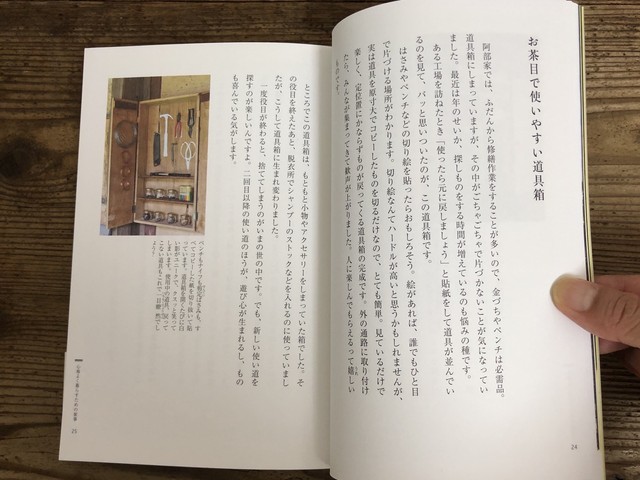 お茶目で使いやすい道具箱
阿部家では、ふだんから修繕作業をすることが多いので、金づちやペンチは必需品。
道具箱にしまっていますが、その中がごちゃごちゃで片づかないことが気になってい
ました。最近は年のせいか、探しものをする時間が増えているのも悩みの種です。
ある工場を訪ねたとき「使ったら元に戻しましょう」と貼紙をして道具が並んでい
るのを見て、パッと思いついたのが、この道具箱です。
はさみやペンチなどの切り絵を貼ったらおもしろそう。絵があれば、誰でもひと目
で片づける場所がわかります。切り絵なんてハードルが高いと思うかもしれませんが、
実は道具を原寸大でコピーしたものを切るだけなので、とても簡単。見ているだけで
楽しく、定位置にかならずものが戻ってくる道具箱の完成です。外の通路に取り付け
たら、みんなが集まってきて歓声が上がりました。人に楽しんでもらえるって嬉しい
ものです。
24
ところでこの道具箱は、もともと小物やアクセサリーをしまっていた箱でした。そ
の役目を終えたあと、脱衣所でシャンプーのストックなどを入れるのに使っていまし
たが、こうして道具箱に生まれ変わりました。
一度役目が終わると、捨ててしまうのがいまの世の中です。でも、新しい使い道を
探すのが楽しいんですよ。二回目以降の使い道のほうが、遊び心が生まれるし、もの
も喜んでいる気がします。
25